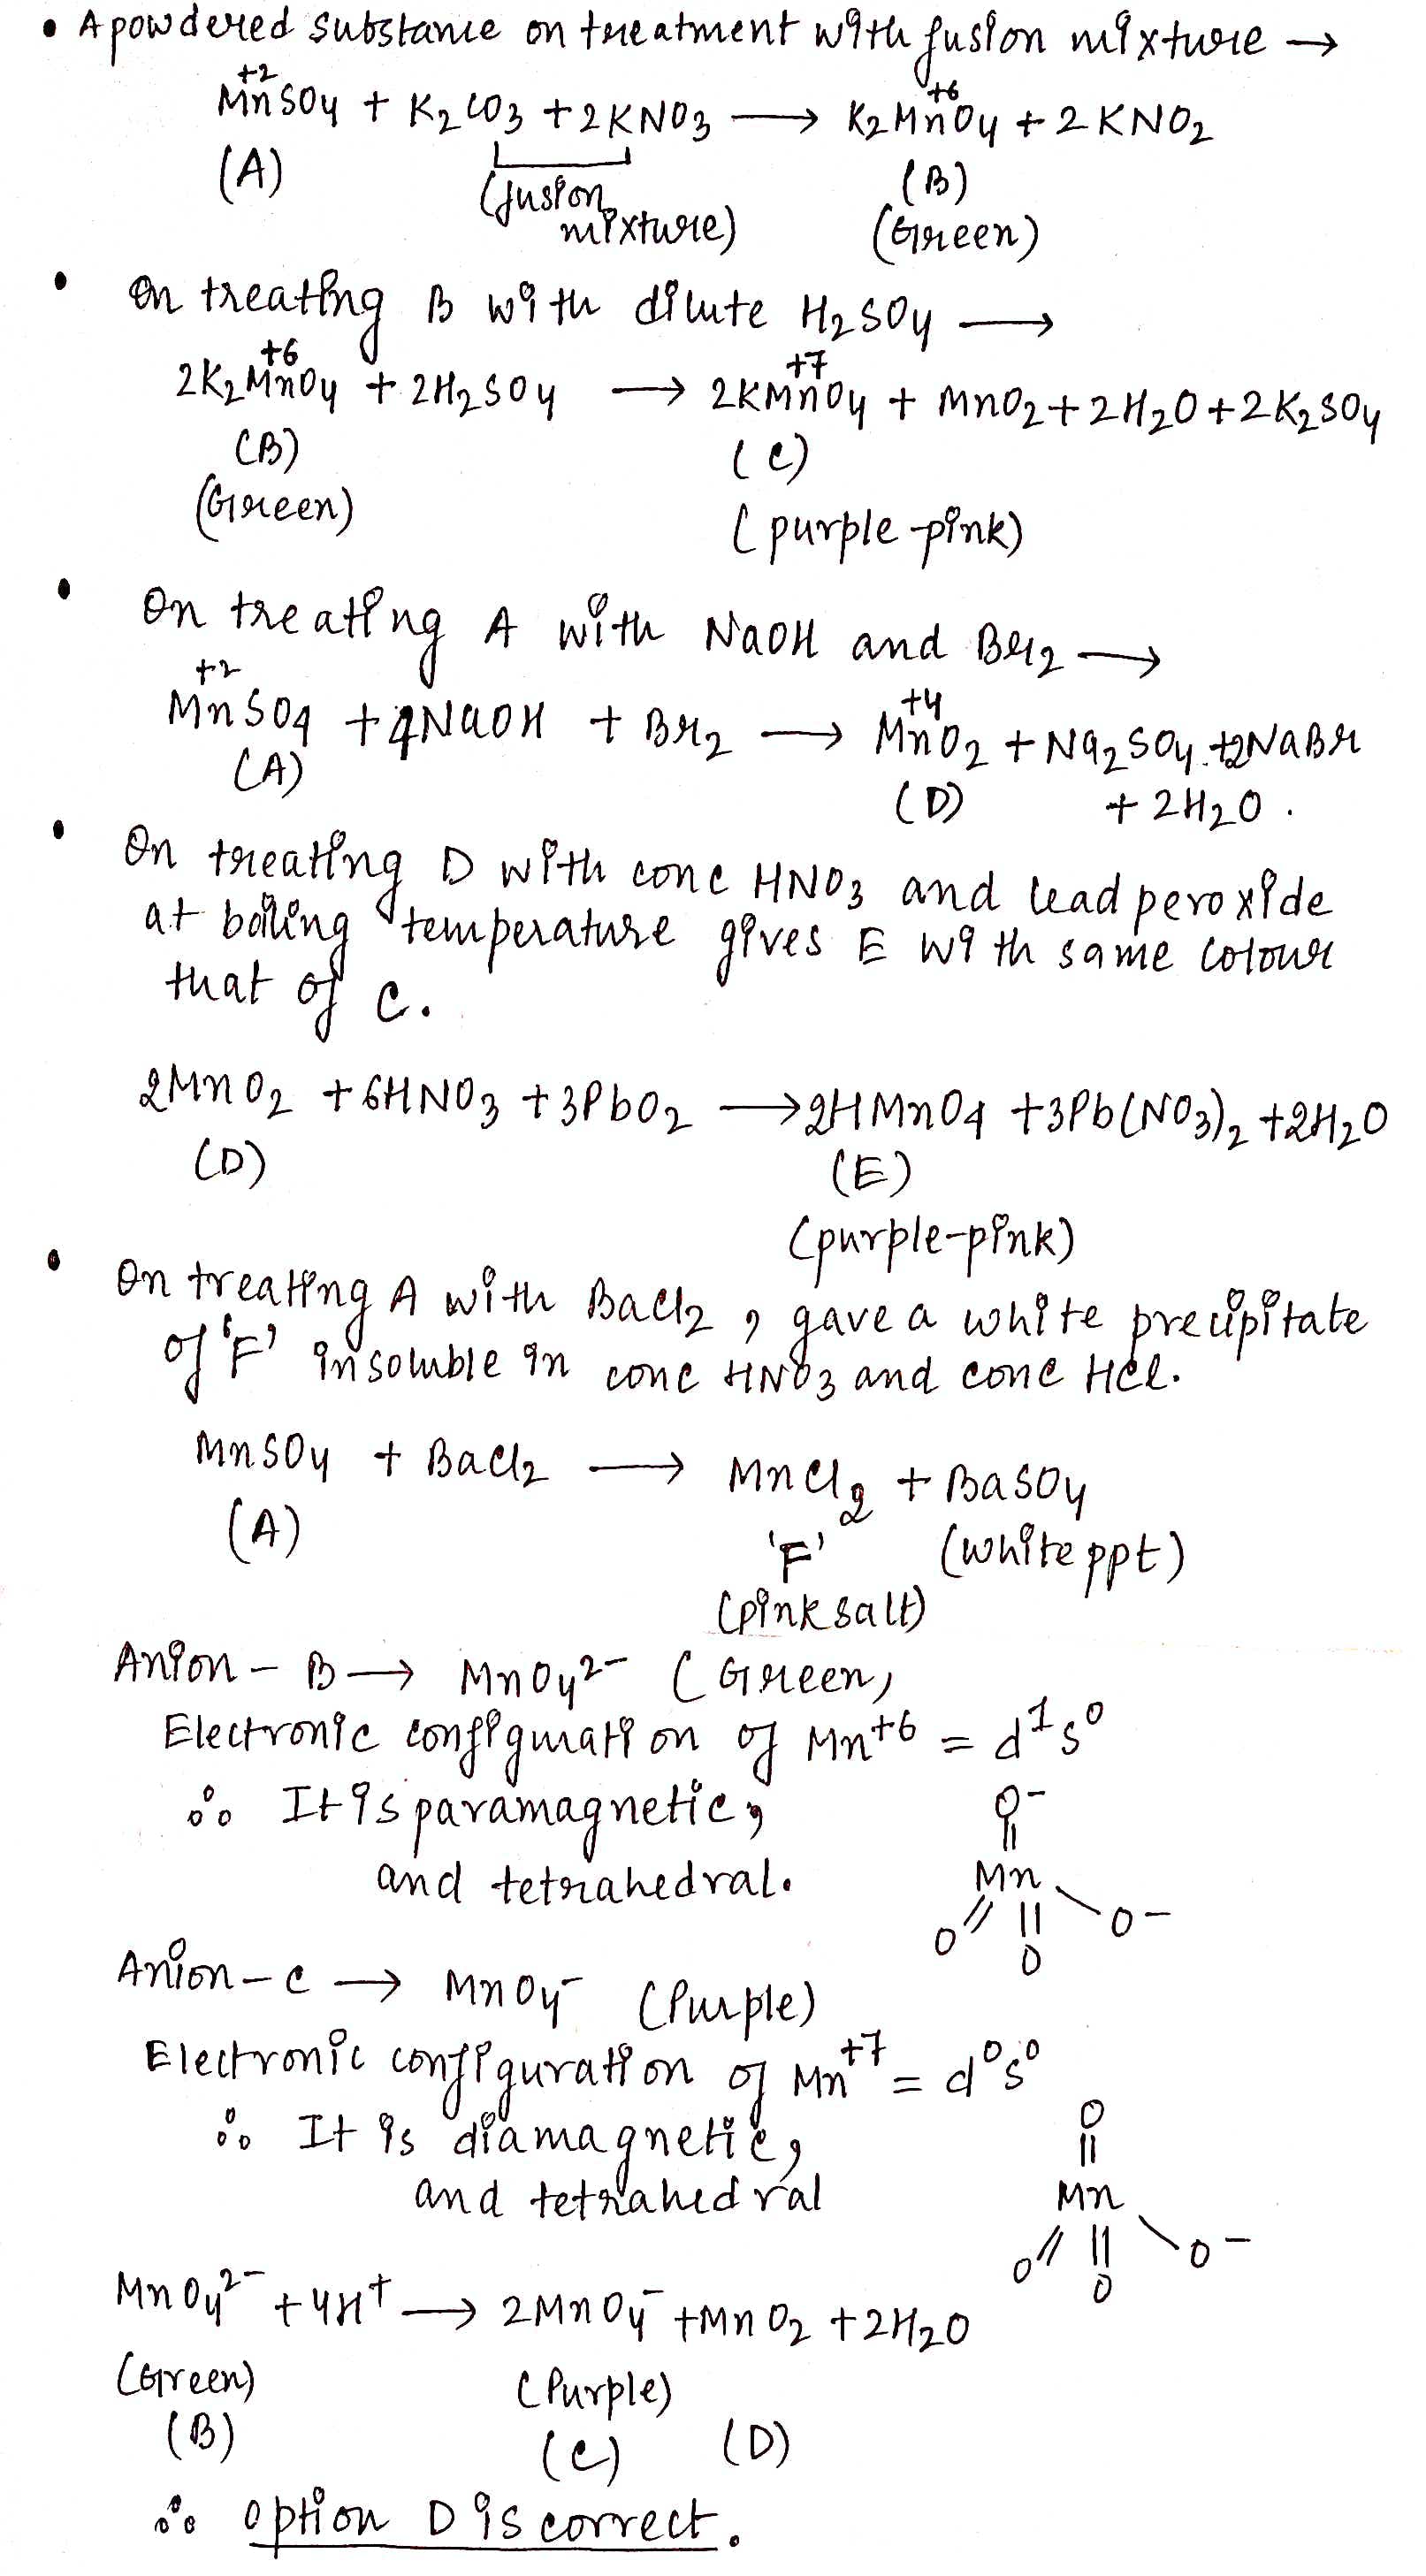 • A powdered substance on treatment with fusion mixture →
+2 +6
MnSO4 + K2CO3 + 2KNO3 → K2MnO4 + 2KNO2
(A) (fusion mixture) (B)
(Green)
• On treating B with dilute H2SO4 →
+6 +7
2K2MnO4 + 2H2SO4 → 2KMnO4 + MnO2 + 2H2O + 2K2SO4
(B) (C)
(Green) (purple-pink)
• On treating A with NaOH and Br2 →
+2 +4
MnSO4 + 4NaOH + Br2 → MnO2 + Na2SO4 + 2NaBr
(A) (D) + 2H2O.
• On treating D with conc HNO3 and lead peroxide
at boiling temperature gives E with same colour
that of C.
2MnO2 + 6HNO3 + 3PbO2 → 2HMnO4 + 3Pb(NO3)2 + 2H2O
(D) (E)
(purple-pink)
• On treating A with BaCl2, gave a white precipitate
of 'F' insoluble in conc HNO3 and conc HCl.
MnSO4 + BaCl2 → MnCl2 + BaSO4
(A) 'F' (white ppt)
(pink salt)
Anion - B → MnO4²⁻ (Green)
Electronic configuration of Mn⁺⁶ = d¹s⁰
∴ It is paramagnetic, O⁻
and tetrahedral. Mn
O O O⁻
Anion - C → MnO4⁻ (Purple)
Electronic configuration of Mn⁺⁷ = d⁰s⁰
∴ It is diamagnetic, O
and tetrahedral Mn
O O O⁻
MnO4²⁻ + 4H⁺ → 2MnO4⁻ + MnO2 + 2H2O
(Green) (Purple)
(B) (C) (D)
∴ option D is correct.